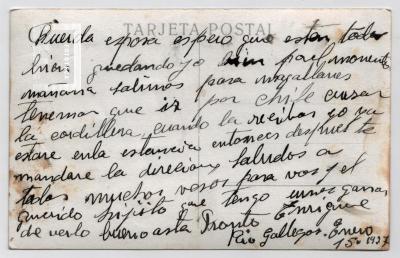 TARJETA POSTAL
Querida esposa espero que esten todos
bien quedando yo bien por el momento
mañana salimos para magallanes
tenemos que ir por chile cruzar
la cordillera cuando la recibas yo ya
estare en la estancia entonces despues te
mandare la direcion saludos a
todos muchos vesos para vos y el
querido hijito que tengo unas ganas
de verlo bueno asta Pronto Enrique
Rio Gallegos Enero
15 1927